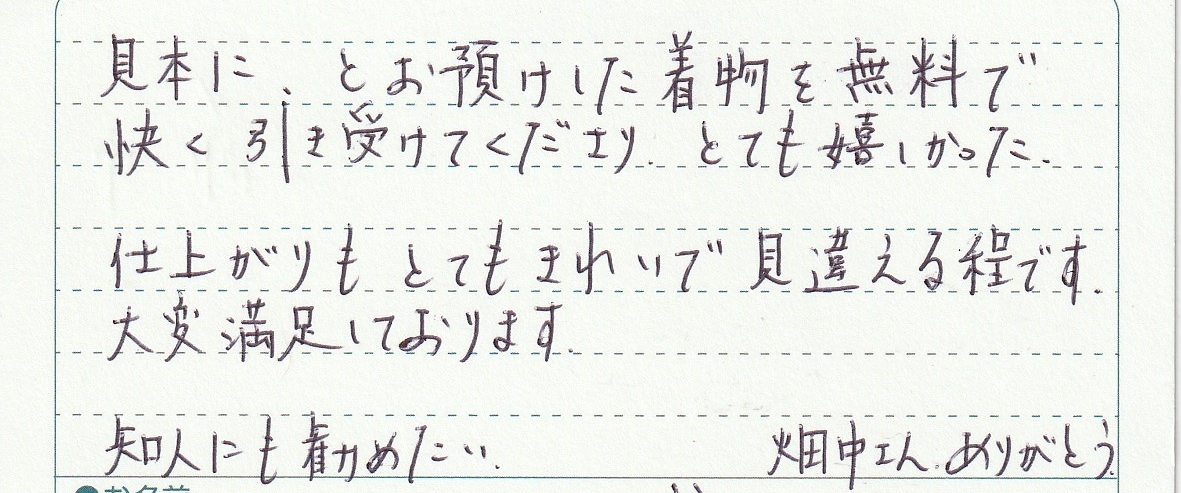 見本に、とお預けした着物を無料で
快く引き受けてくださり、とても嬉しかった。
仕上がりもとてもきれいで見違える程です。
大変満足しております。
知人にも勧めたい。 畑中さん、ありがとう